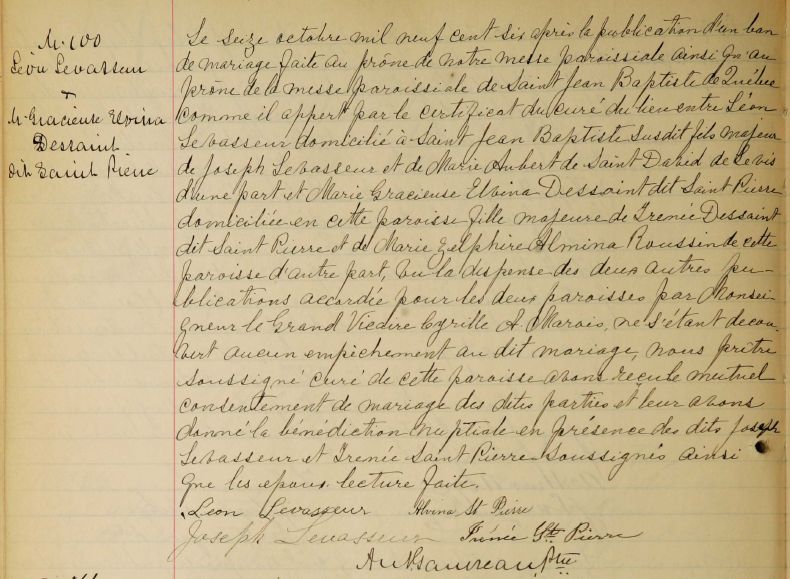 M. 100
Léon Levasseur
&
M. Gracieuse Elvina
Dessaint
dit Saint Pierre
Le seize octobre mil neuf cent six après la publication d'un ban
de mariage faite au prône de notre messe paroissiale ainsi qu'au
prône de la messe paroissiale de Saint Jean Baptiste de Québec
comme il appert par le certificat du curé du lieu entre Léon
Levasseur domicilié à Saint Jean Baptiste susdit fils majeur
de Joseph Levasseur et de Marie Aubert de Saint David de Levis
d'une part et Marie Gracieuse Elvina Dessaint dit Saint Pierre
domiciliée en cette paroisse fille majeure de Irenée Dessaint
dit Saint Pierre et de Marie Zelphire Almina Roussin de cette
paroisse d'autre part, vu la dispense des deux autres pu-
blications accordée pour les deux paroisses par Monsei-
gneur le Grand Vicaire Cyrille A. Marois, ne s'étant décou-
vert aucun empêchement au dit mariage, nous prêtre
soussigné curé de cette paroisse avons reçu le mutuel
consentement de mariage des dites parties et leur avons
donné la bénédiction nuptiale en présence des dits Joseph
Levasseur et Irenée Saint Pierre soussignés ainsi
que les epoux. lecture faite.
Leon Levasseur Alvina St Pierre
Joseph Levasseur Irénée St Pierre
Ptre